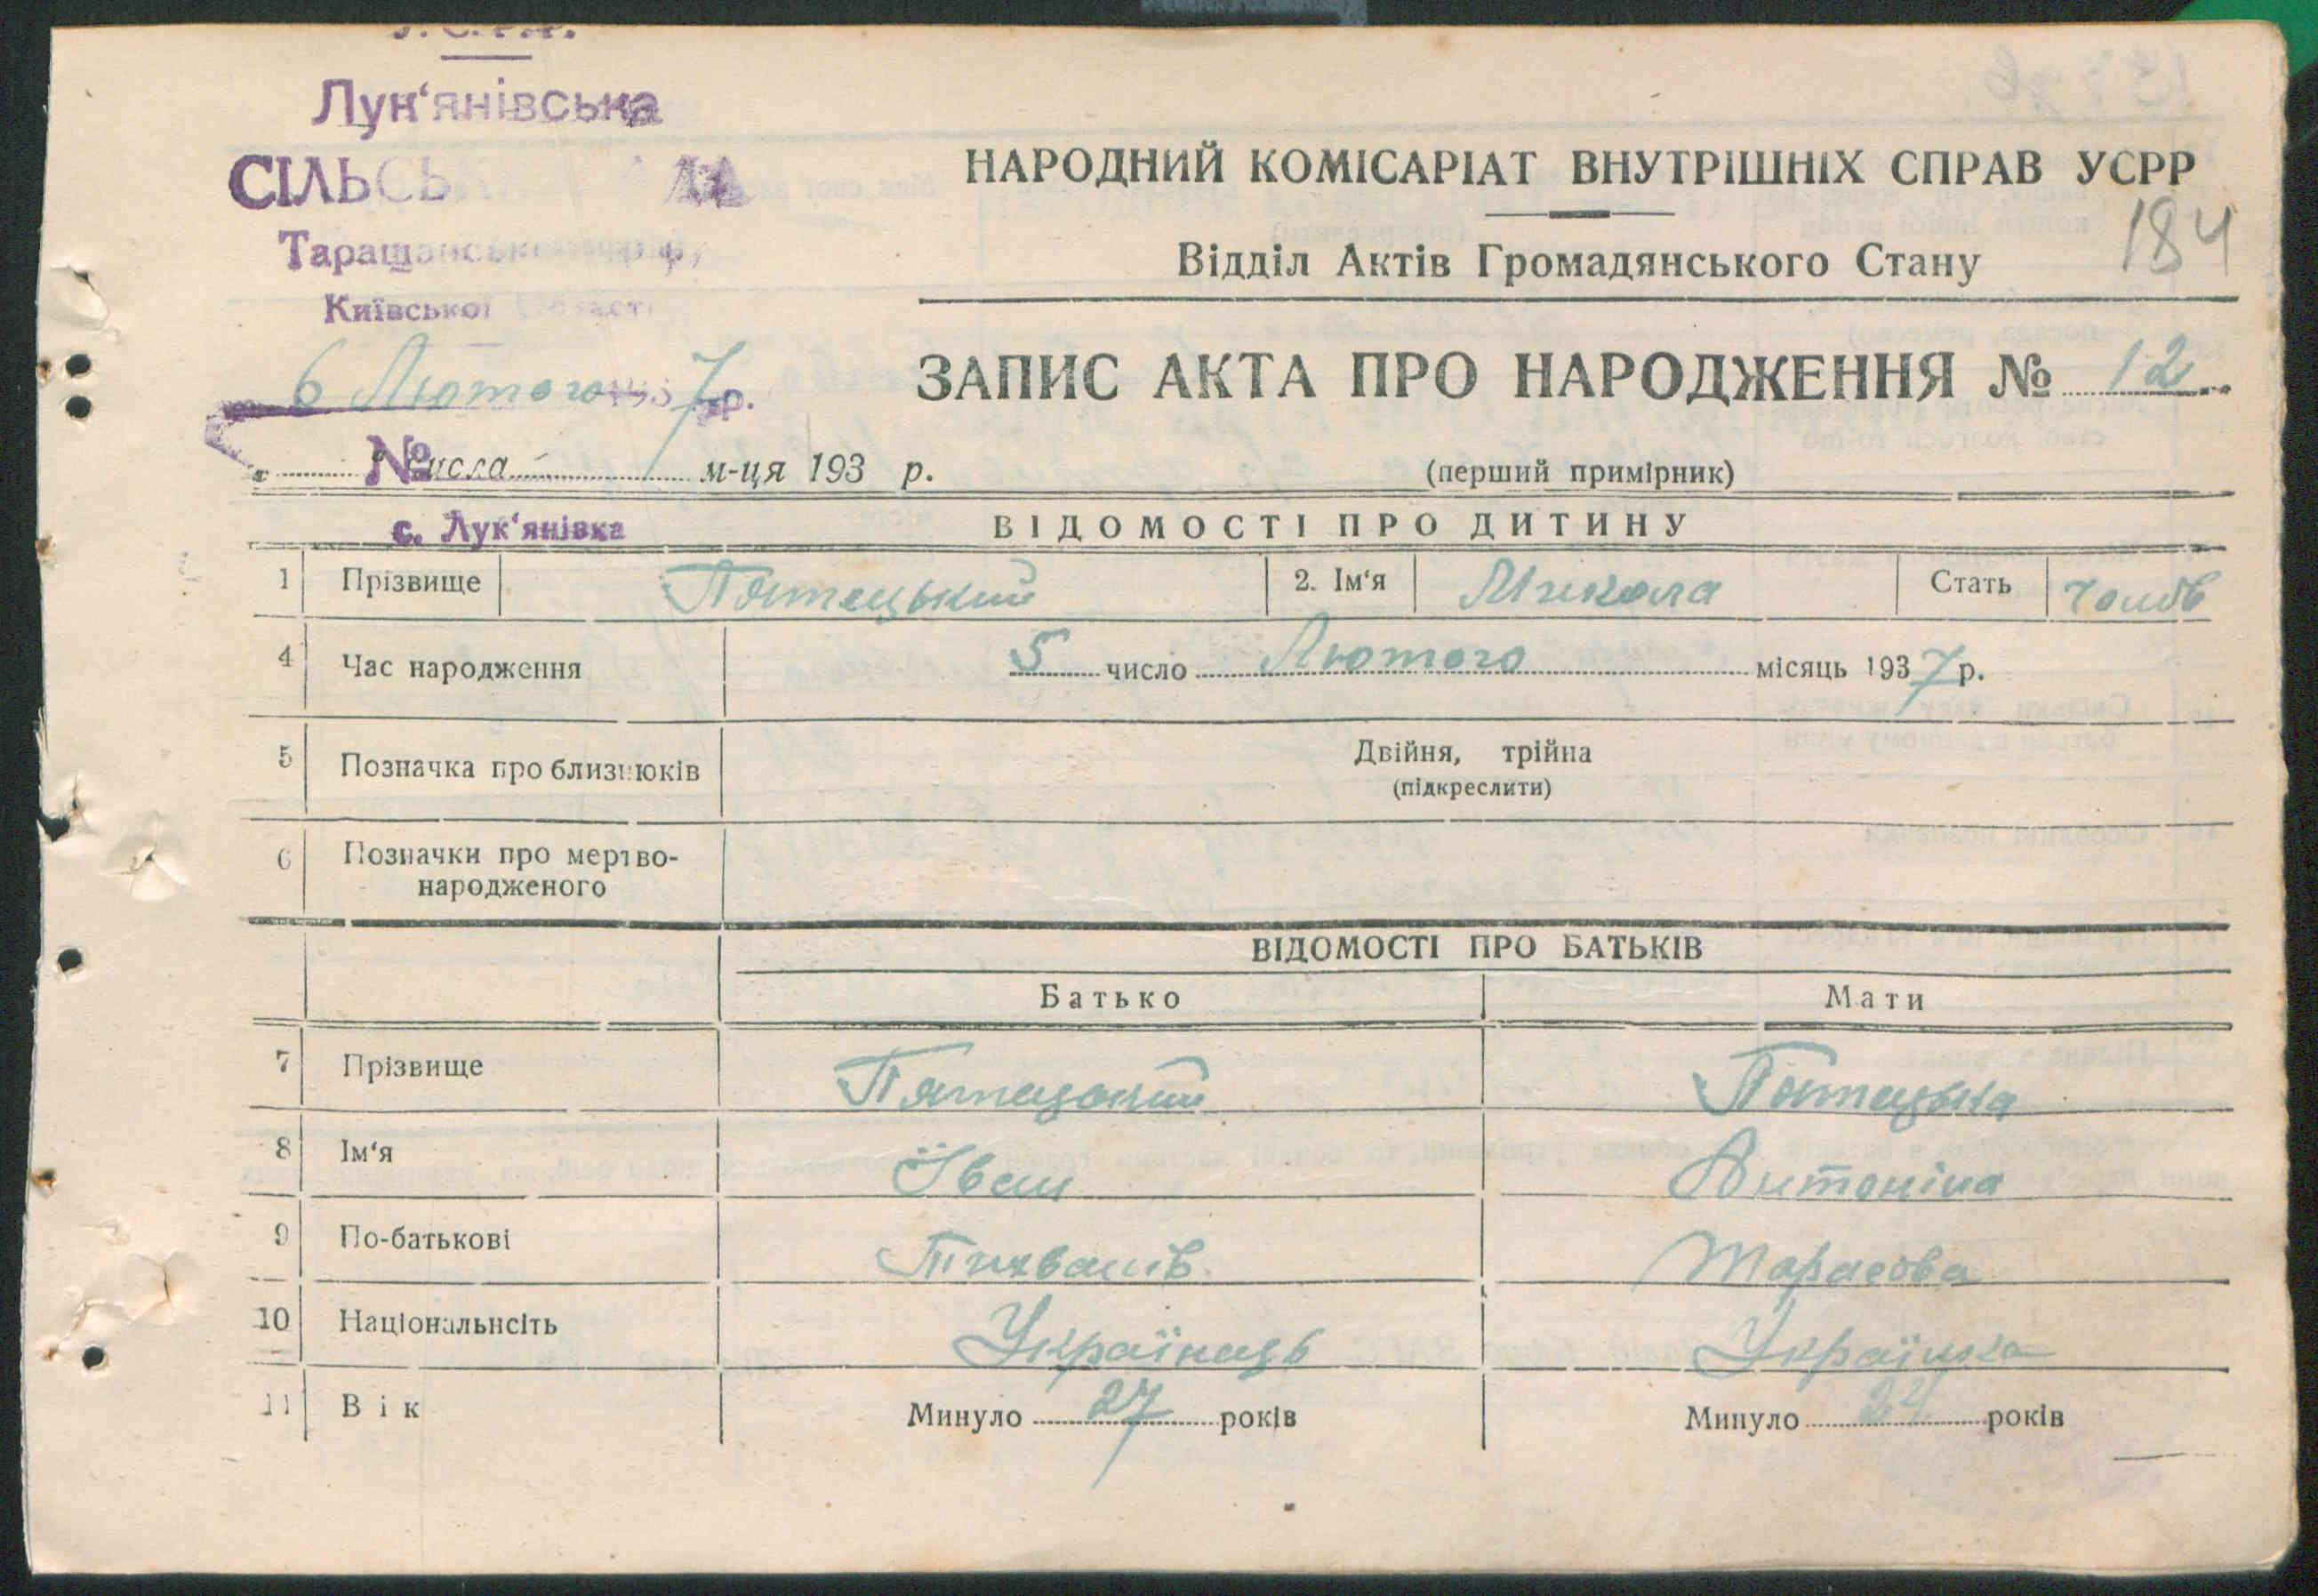 Лук'янівська
СІЛЬСЬКА РАДА
Таращанського р-ну,
Київської Області
6 Лютого 1937 р.
№
числа м-ця 193 р.
с. Лук'янівка
НАРОДНИЙ КОМІСАРІАТ ВНУТРІШНІХ СПРАВ УСРР
184
Відділ Актів Громадянського Стану
ЗАПИС АКТА ПРО НАРОДЖЕННЯ № 12
(перший примірник)
ВІДОМОСТІ ПРО ДИТИНУ
1 Прізвище Пятецький 2. Ім'я Микола Стать чолов
4 Час народження 5 число Лютого місяць 1937 р.
5 Позначка про близнюків Двійня, трійна
(підкреслити)
6 Позначки про мертво-
народженого
ВІДОМОСТІ ПРО БАТЬКІВ
Батько Мати
7 Прізвище Пятецький Пятецька
8 Ім'я Іван Антоніна
9 По-батькові Тарасова
10 Національнсіть Українець Українка
11 Вік Минуло 27 років Минуло 24 років